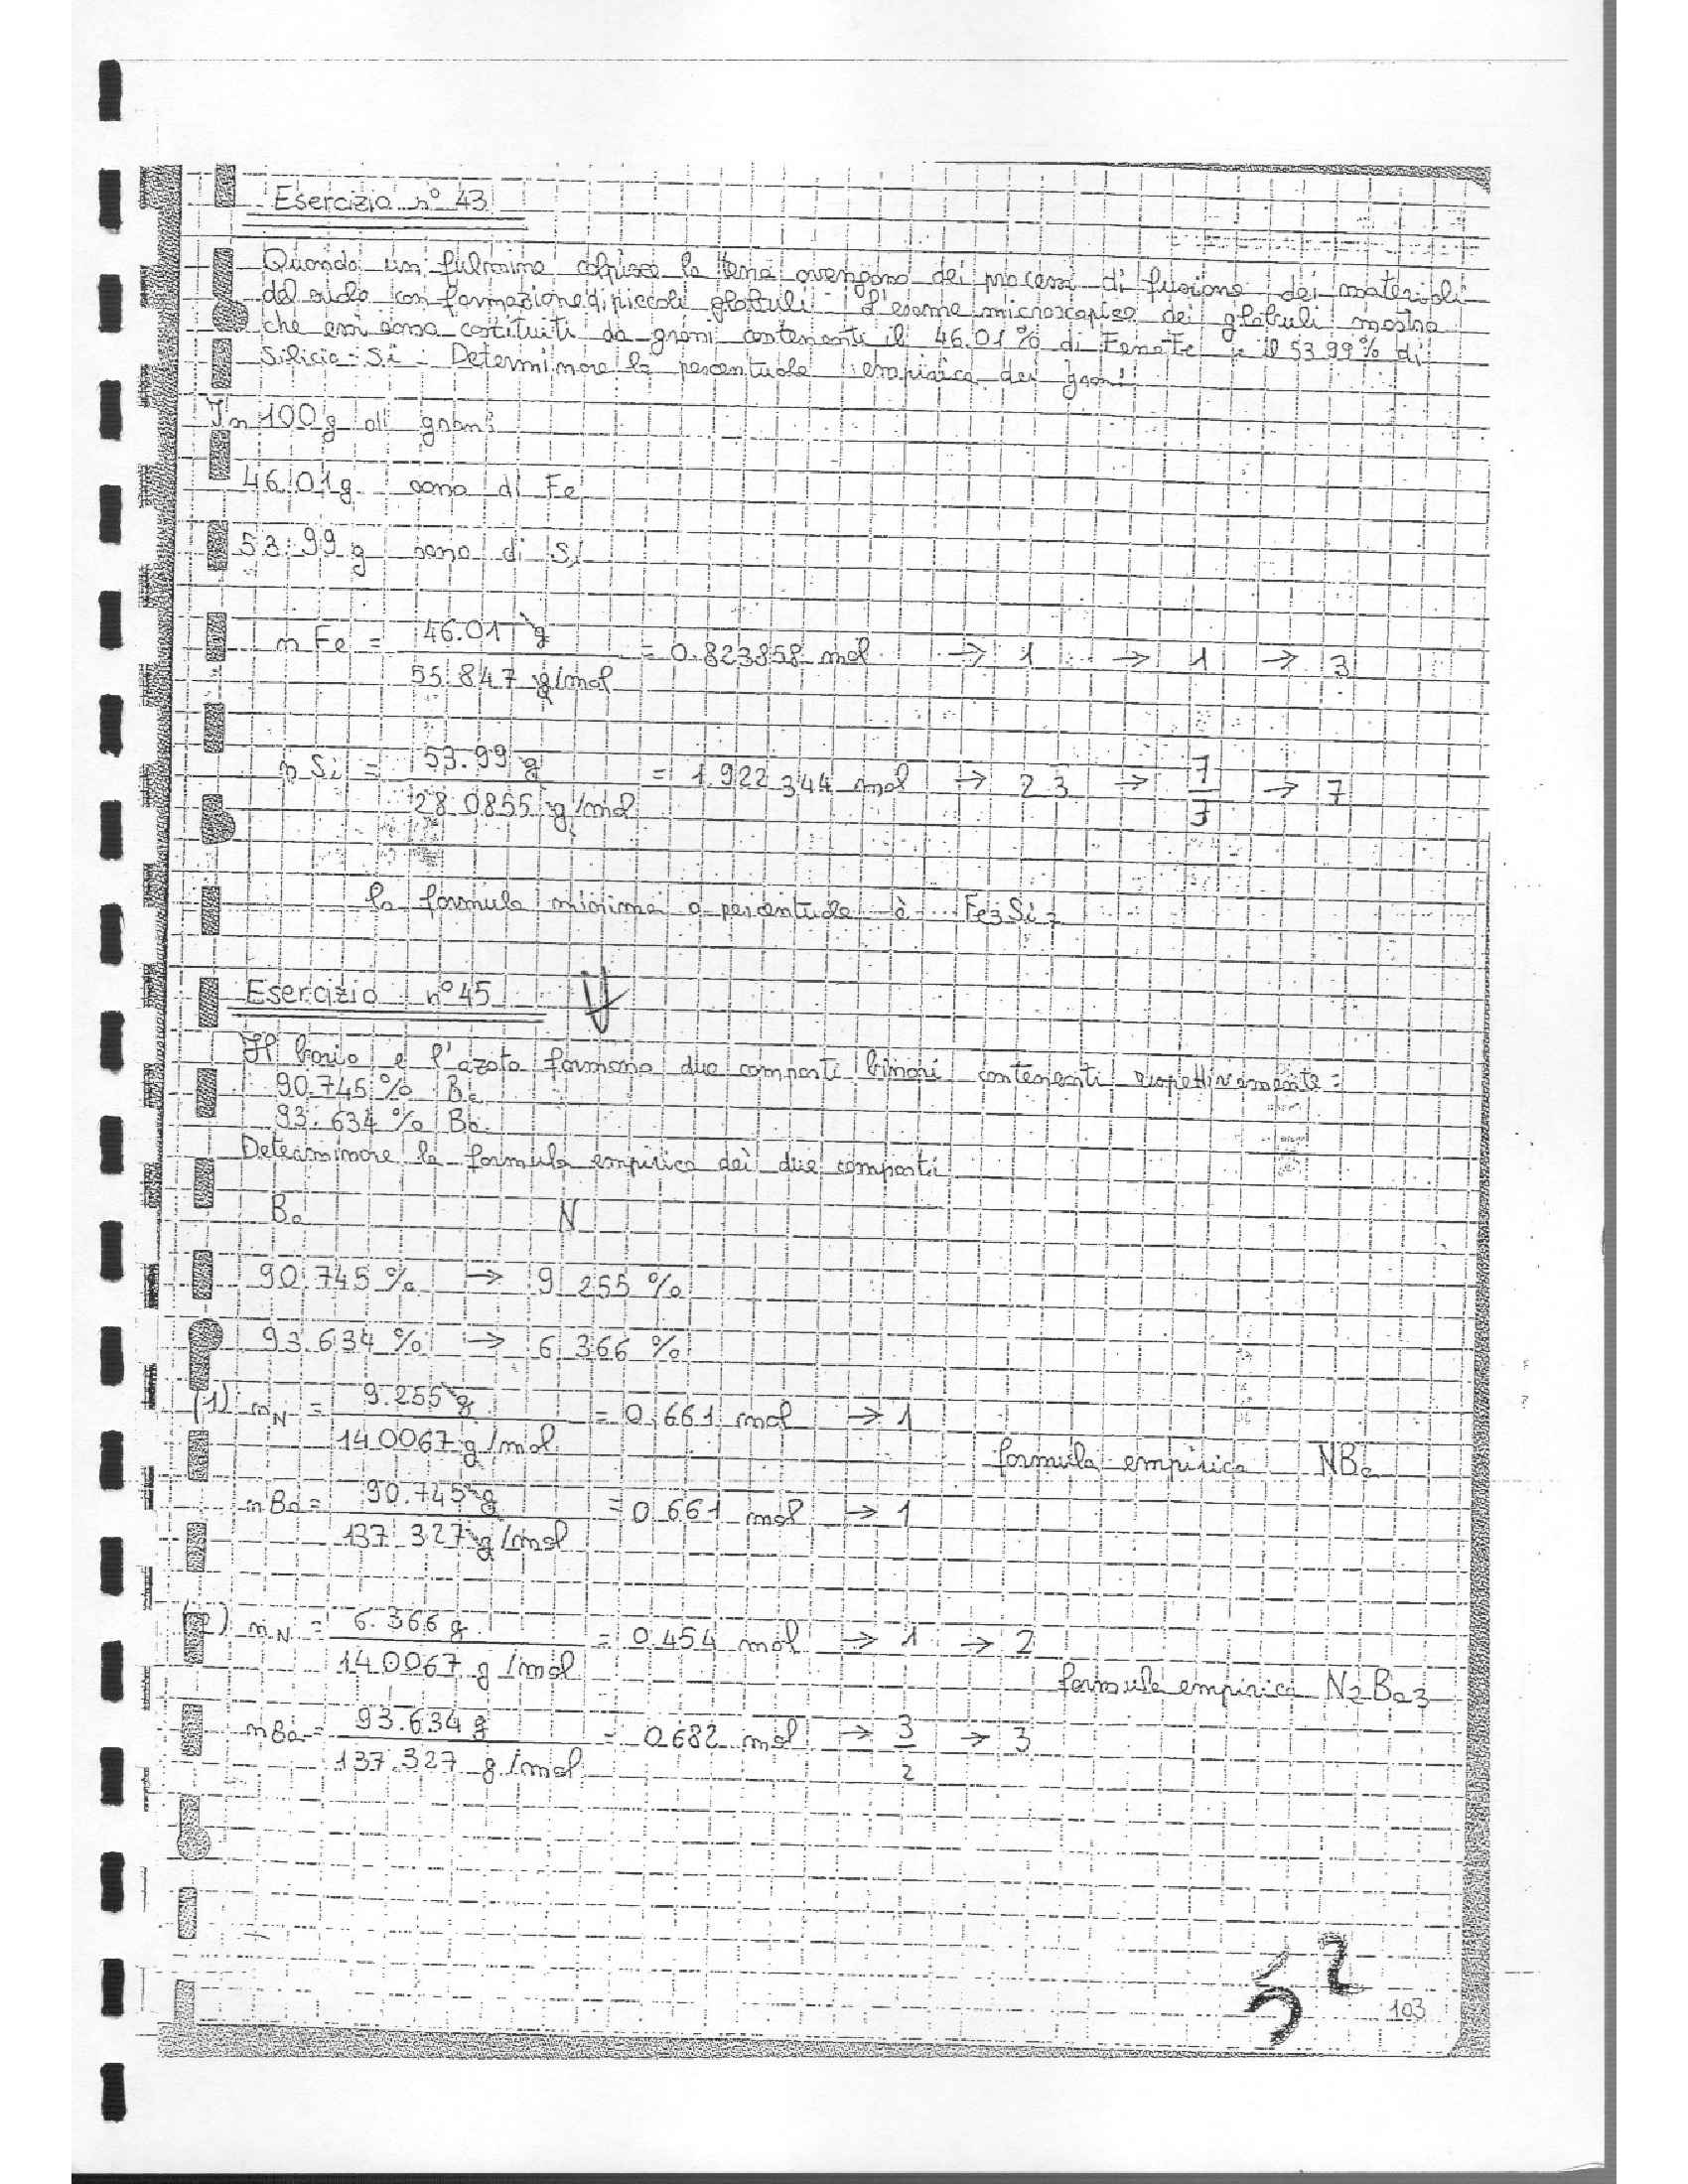 Esercizio n° 43
Quando un fulmine colpisce la terra avvengono dei processi di fusione dei materiali
del suolo con formazione di piccoli globuli. L'esame microscopico dei globuli mostra
che essi sono costituiti da grani contenenti il 46.01% di Ferro Fe e il 53.99% di
Silicio Si. Determinare la percentuale empirica dei grani
In 100g di grani
46.01g sono di Fe
53.99g sono di Si
n Fe = 46.01 g / 55.847 g/mol = 0.823858 mol → 1 → 1 → 3
n Si = 53.99 g / 28.0855 g/mol = 1.922344 mol → 2.3 → 7/3 → 7
la formula minima o percentuale è Fe3Si7
Esercizio n° 45
Il bario e l'azoto formano due composti binari contenenti rispettivamente:
90.745% Ba
93.634% Ba
Determinare la formula empirica dei due composti
Ba N
90.745% → 9.255%
93.634% → 6.366%
(1) nN = 9.255 g / 14.0067 g/mol = 0.661 mol → 1
formula empirica NBa
nBa = 90.745 g / 137.327 g/mol = 0.661 mol → 1
(2) nN = 6.366 g / 14.0067 g/mol = 0.454 mol → 1 → 2
formula empirica N2Ba3
nBa = 93.634 g / 137.327 g/mol = 0.682 mol → 3/2 → 3
52
103